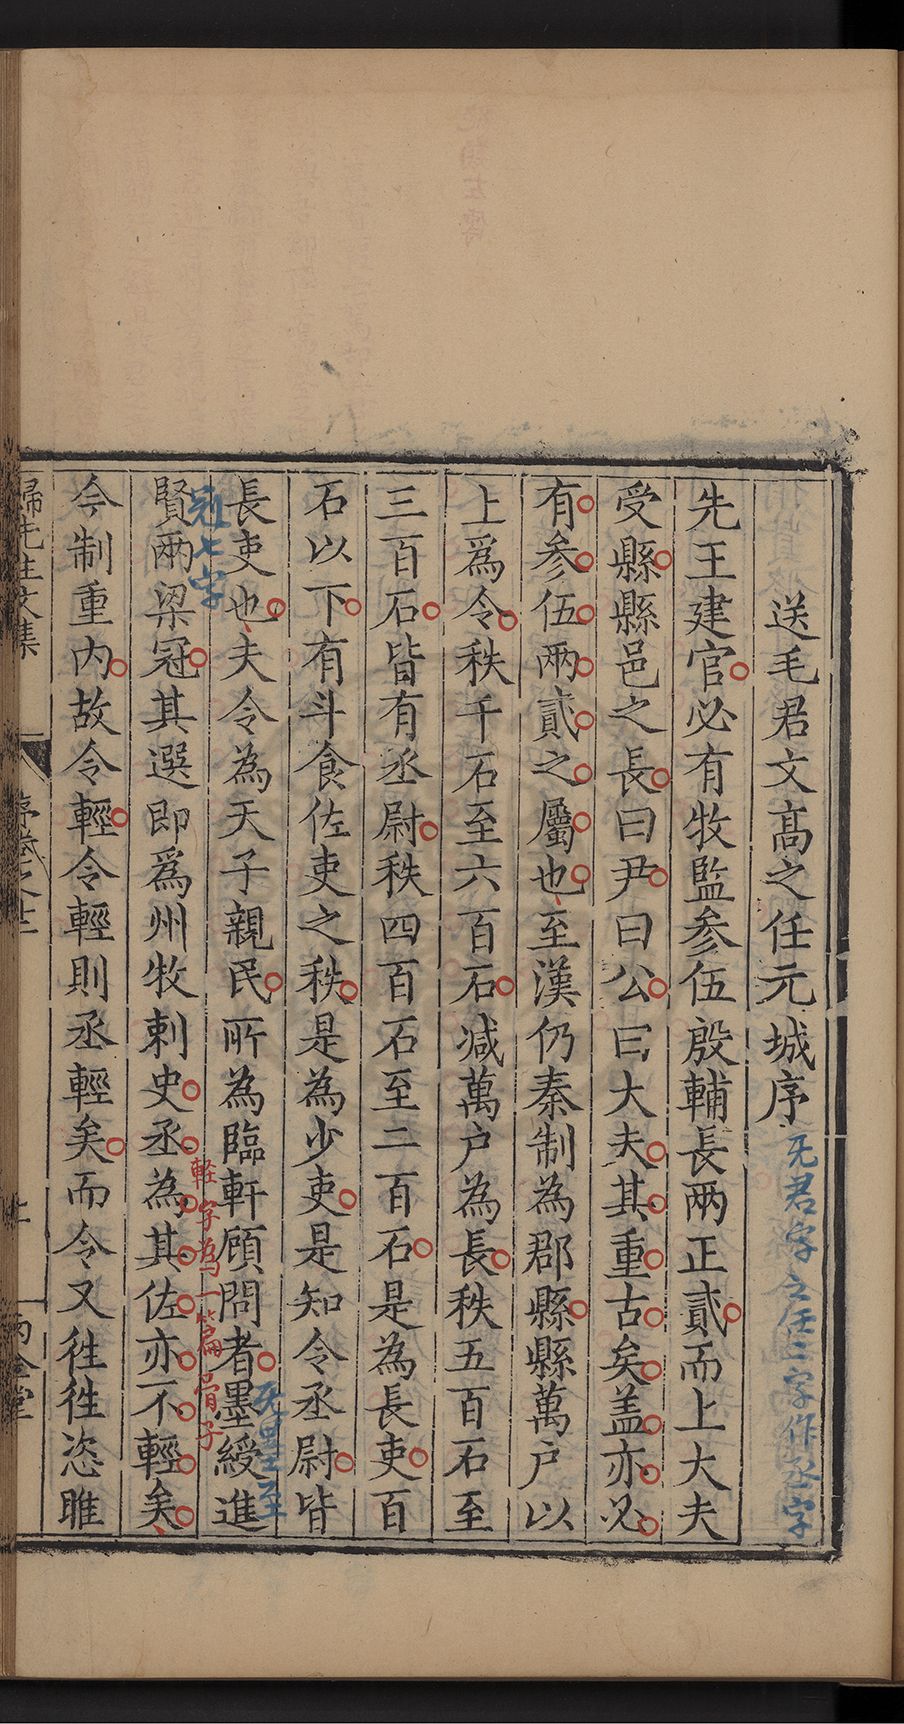 送毛君文髙之任元城序
无君字之任二字作丞字
先王建官必有牧監参伍殷輔長兩正貳而上大夫
受縣縣邑之長曰尹曰公曰大夫其重古矣盖亦必
有参伍兩貳之屬也至漢仍秦制為郡縣縣萬户以
上爲令秩千石至六百石减萬户為長秩五百石至
三百石皆有丞尉秩四百石至二百石是為長吏百
石以下有斗食佐吏之秩是為少吏是知令丞尉皆
長吏也夫令為天子親民所為臨軒顧問者墨綬進
无墨至
冠七字
賢兩梁冠其選即爲州牧刺史丞為其佐亦不輕矣
軽字為一篇骨子
今制重内故令輕令輕則丞輕矣而令又徃徃恣睢
歸先生文集
序卷之十二